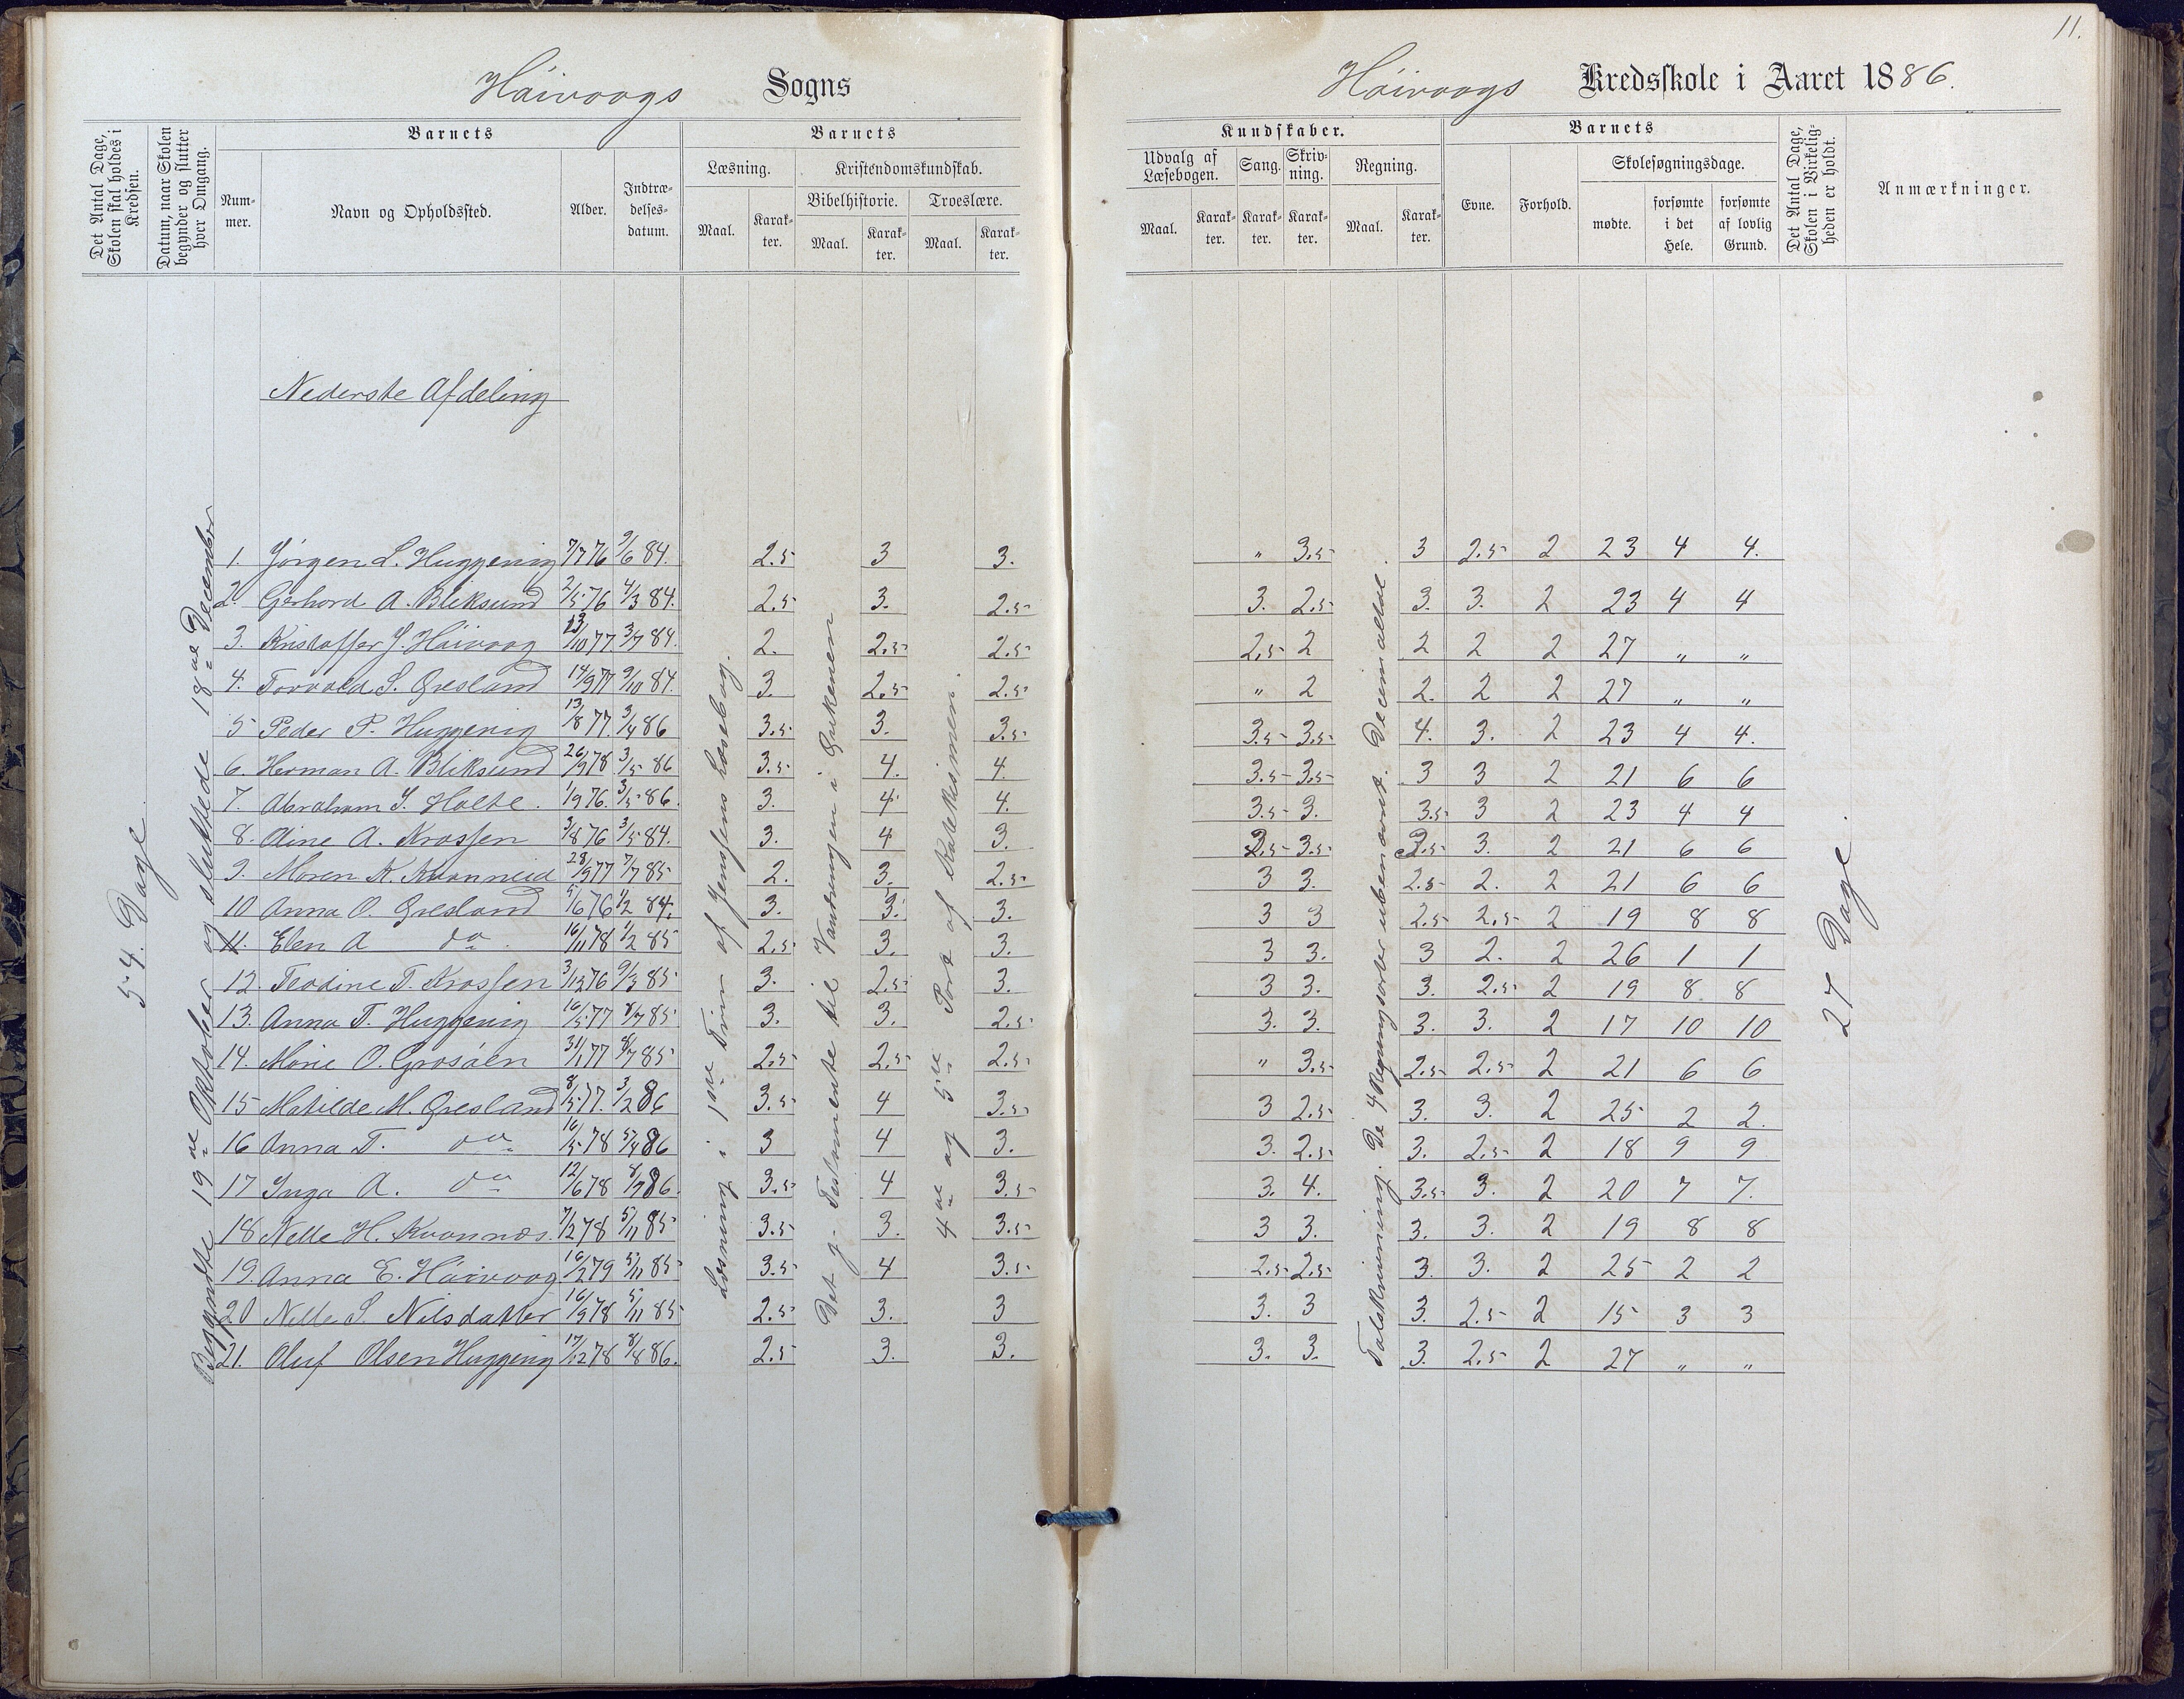 11.
Höivaags Sogns
Höivaags Kredsskole i Aaret 1886.
Det Antal Dage, Skolen skal holdes i Kredsen.
Datum, naar Skolen begynder og slutter hver Omgang.
Barnets
Num-mer.
Navn og Opholdssted.
Alder.
Indtræ-delses-datum.
Barnets
Læsning.
Maal. Karak-ter.
Kristendomskundskab.
Bibelhistorie. Troeslære.
Maal. Karak-ter. Maal. Karak-ter.
Kundskaber.
Udvalg af Læsebogen. Sang. Skriv-ning. Regning.
Maal. Karak-ter. Karak-ter. Karak-ter. Maal. Karak-ter.
Barnets
Evne. Forhold.
Skolesøgningsdage.
mødte. forsømte i det Hele. forsømte af lovlig Grund.
Det Antal Dage, Skolen i Virkelig-heden er holdt.
Anmærkninger.
Nederste Afdeling
54. Dage
Begyndte 19de Oktober og sluttede 18de December
Læsning i 1ste Trin af Jenssens Læsebog.
Det g. Testamente til Vandringen i Ørkenen
4de og 5te Part af Katekismen.
Talskrivning. De 4 Regningsarter ubenævnt. Decimaltal.
27 Dage.
1. Jörgen L. Huggenig 7/7 76 9/6 84. 2.5 3 3. " 3.5 3 2.5 2 23 4 4.
2. Gerhard A. Bliksund 2/5 76 4/3 84. 2.5 3. 2.5 3. 2.5 3. 3. 2 23 4 4
3. Kristoffer J. Höivaag 13/10 77. 3/7 84. 2. 2.5 2.5 2.5 2 2 2 2 27 " "
4. Torvald S. Øresland 14/9 77 9/10 84. 3. 2.5 2.5 " 2 2. 2 2 27 " "
5 Peder P. Huggenig 13/8 77. 3/4 86 3.5 3. 3.5 3.5 3.5 4. 3. 2 23 4 4.
6. Herman A. Bliksund 26/9 78 3/5 86 3.5 4. 4. 3.5 3.5 3 3 2 21 6 6
7. Abraham S. Holte. 1/9 76. 3/5 86. 3. 4 4. 3.5 3. 3.5 3 2 23 4 4
8. Aine A. Krossen 3/8 76 3/5 84. 3. 4 3. 2.5 3.5 2.5 3. 2 21 6 6
9. Maren K. Kvanneid 28/9 77 7/7 85 2. 3. 2.5 3 3. 2.5 2. 2 21 6 6
10 Anna O. Øresland 5/6 76 1/2 84. 3. 3. 3. 3 3 2.5 2.5 2 19 8 8
11. Elen A do 16/11 78 1/2 85 2.5 3. 3. 3 3. 3 2. 2 26 1 1
12. Teodine T. Krossen 3/12 76 9/3 85 3. 2.5 3. 3 3. 3. 2.5 2 19 8 8
13. Anna T. Huggenig 16/5 77 8/7 85 3. 3. 2.5 3. 3. 3. 3. 2 17 10 10
14. Marie O. Grosåen 31/1 77 8/7 85 2.5 2.5 2.5 " 3.5 2.5 2.5 2 21 6 6
15 Matilde M. Øresland 8/5 77. 3/2 86 3.5 4 3.5 3 2.5 3. 3. 2 25 2 2.
16 Anna T. do 16/5 78 5/4 86 3 4 3. 3. 2.5 3. 2.5 2 18 9 9
17 Inga A. do 12/6 78 8/7 86. 3.5 4 3.5 3. 4. 3.5 3. 2 20 7 7.
18 Nelle H. Kvannæs. 7/2 78 5/11 85 3.5 3. 3.5 3 3. 3. 3. 2 19 8 8
19. Anna E. Höivaag 16/2 79 5/11 85 3.5 4 3.5 2.5 2.5 3. 3. 2 25 2 2
20 Nelle S. Nilsdatter 16/9 78 5/11 85 2.5 3. 3 3. 3 3. 2.5 2 15 3 3
21. Oluf Olsen Huggenig 17/12 78 8/8 86. 2.5 3. 3. 3. 3. 3. 2.5 2 27 " "